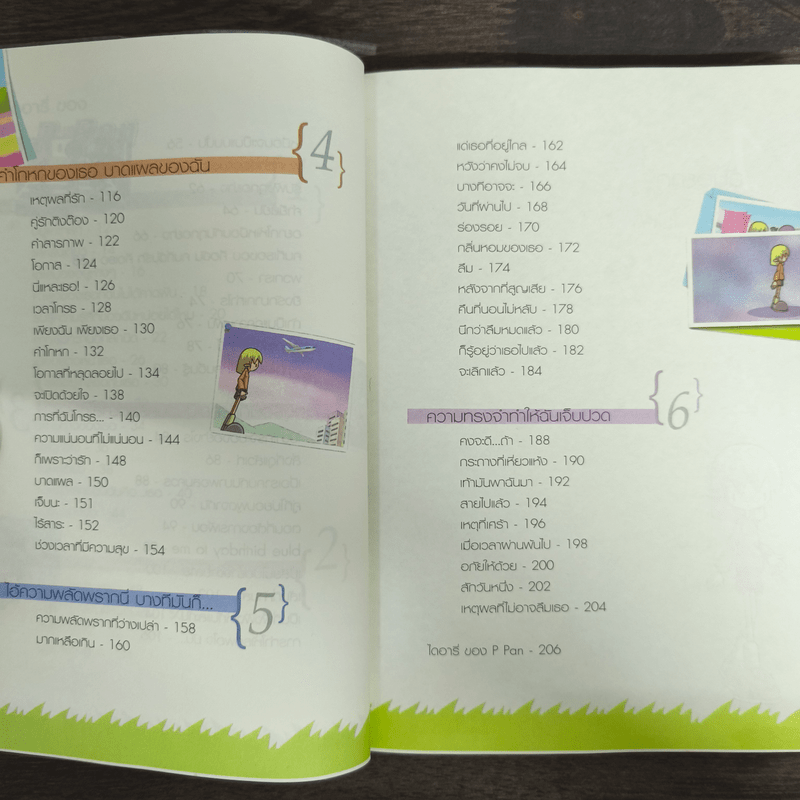 {4}
คำโกหกของเธอ บาดแผลของฉัน
เหตุผลที่รัก - 116
คู่รักติงต๊อง - 120
คำสารภาพ - 122
โอกาส - 124
นี่แหละเธอ! - 126
เวลาโกรธ - 128
เพียงฉัน เพียงเธอ - 130
คำโกหก - 132
โอกาสที่หลุดลอยไป - 134
จะเปิดด้วยใจ - 138
การที่ฉันโกรธ... - 140
ความแน่นอนที่ไม่แน่นอน - 144
ก็เพราะว่ารัก - 148
บาดแผล - 150
เจ็บนะ - 151
ไร้สาระ - 152
ช่วงเวลาที่มีความสุข - 154
ไอ้ความพลัดพรากนี่ บางทีมันก็...
{5}
ความพลัดพรากที่ว่างเปล่า - 158
มากเหลือเกิน - 160
แด่เธอที่อยู่ไกล - 162
หวังว่าคงไม่จบ - 164
บางทีอาจจะ - 166
วันที่ผ่านไป - 168
ร่องรอย - 170
กลิ่นหอมของเธอ - 172
ลืม - 174
หลังจากที่สูญเสีย - 176
คืนที่นอนไม่หลับ - 178
นึกว่าลืมหมดแล้ว - 180
ก็รู้อยู่ว่าเธอไปแล้ว - 182
จะเลิกแล้ว - 184
ความทรงจำทำให้ฉันเจ็บปวด
{6}
คงจะดี...ถ้า - 188
กระถางที่เหี่ยวแห้ง - 190
เท้ามันพาฉันมา - 192
สายไปแล้ว - 194
เหตุที่เศร้า - 196
เมื่อเวลาผ่านพ้นไป - 198
อภัยให้ด้วย - 200
สักวันหนึ่ง - 202
เหตุผลที่ไม่อาจลืมเธอ - 204
ไดอารี่ ของ P Pan - 206